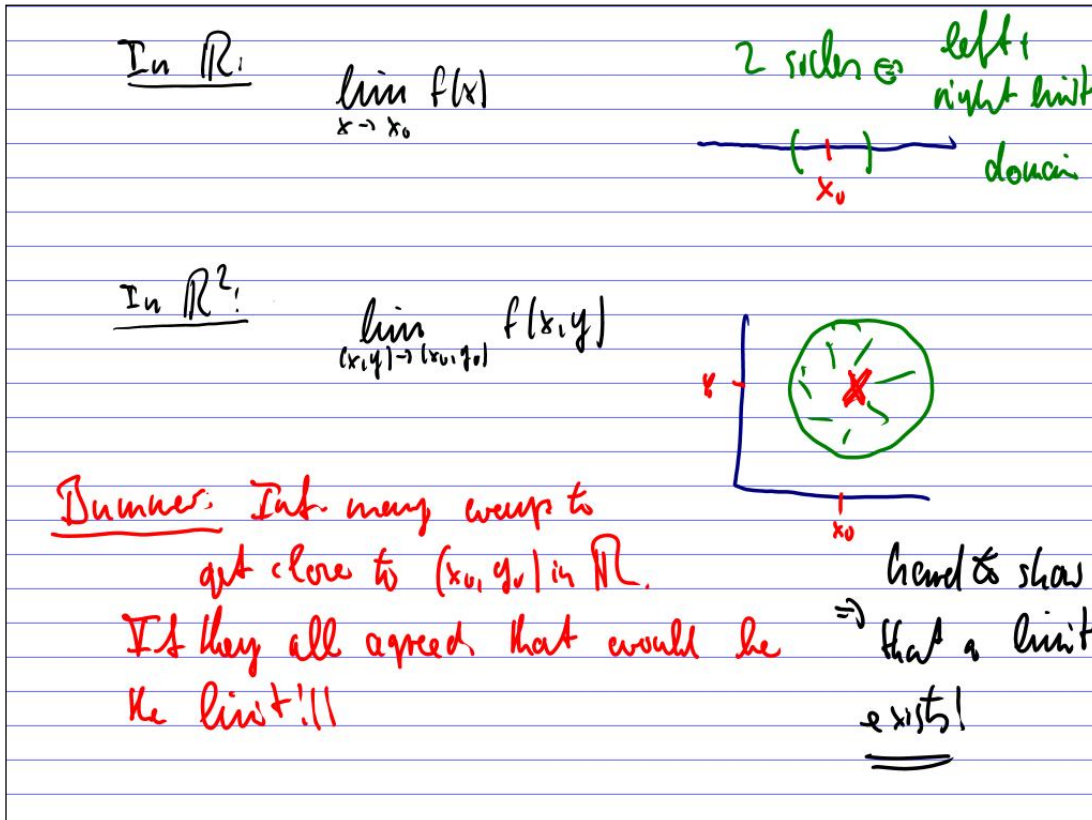 In ℝ:
lim f(x)
x → x₀
2 sides ⇒ left +
right limit
( )
x₀
domain
In ℝ²:
lim f(x,y)
(x,y) → (x₀,y₀)
y₀
x₀
Bummer: Inf. many ways to
get close to (x₀, y₀) in ℝ.
If they all agreed that would be
the limit!!!
hard to show
⇒ that a limit
exists!